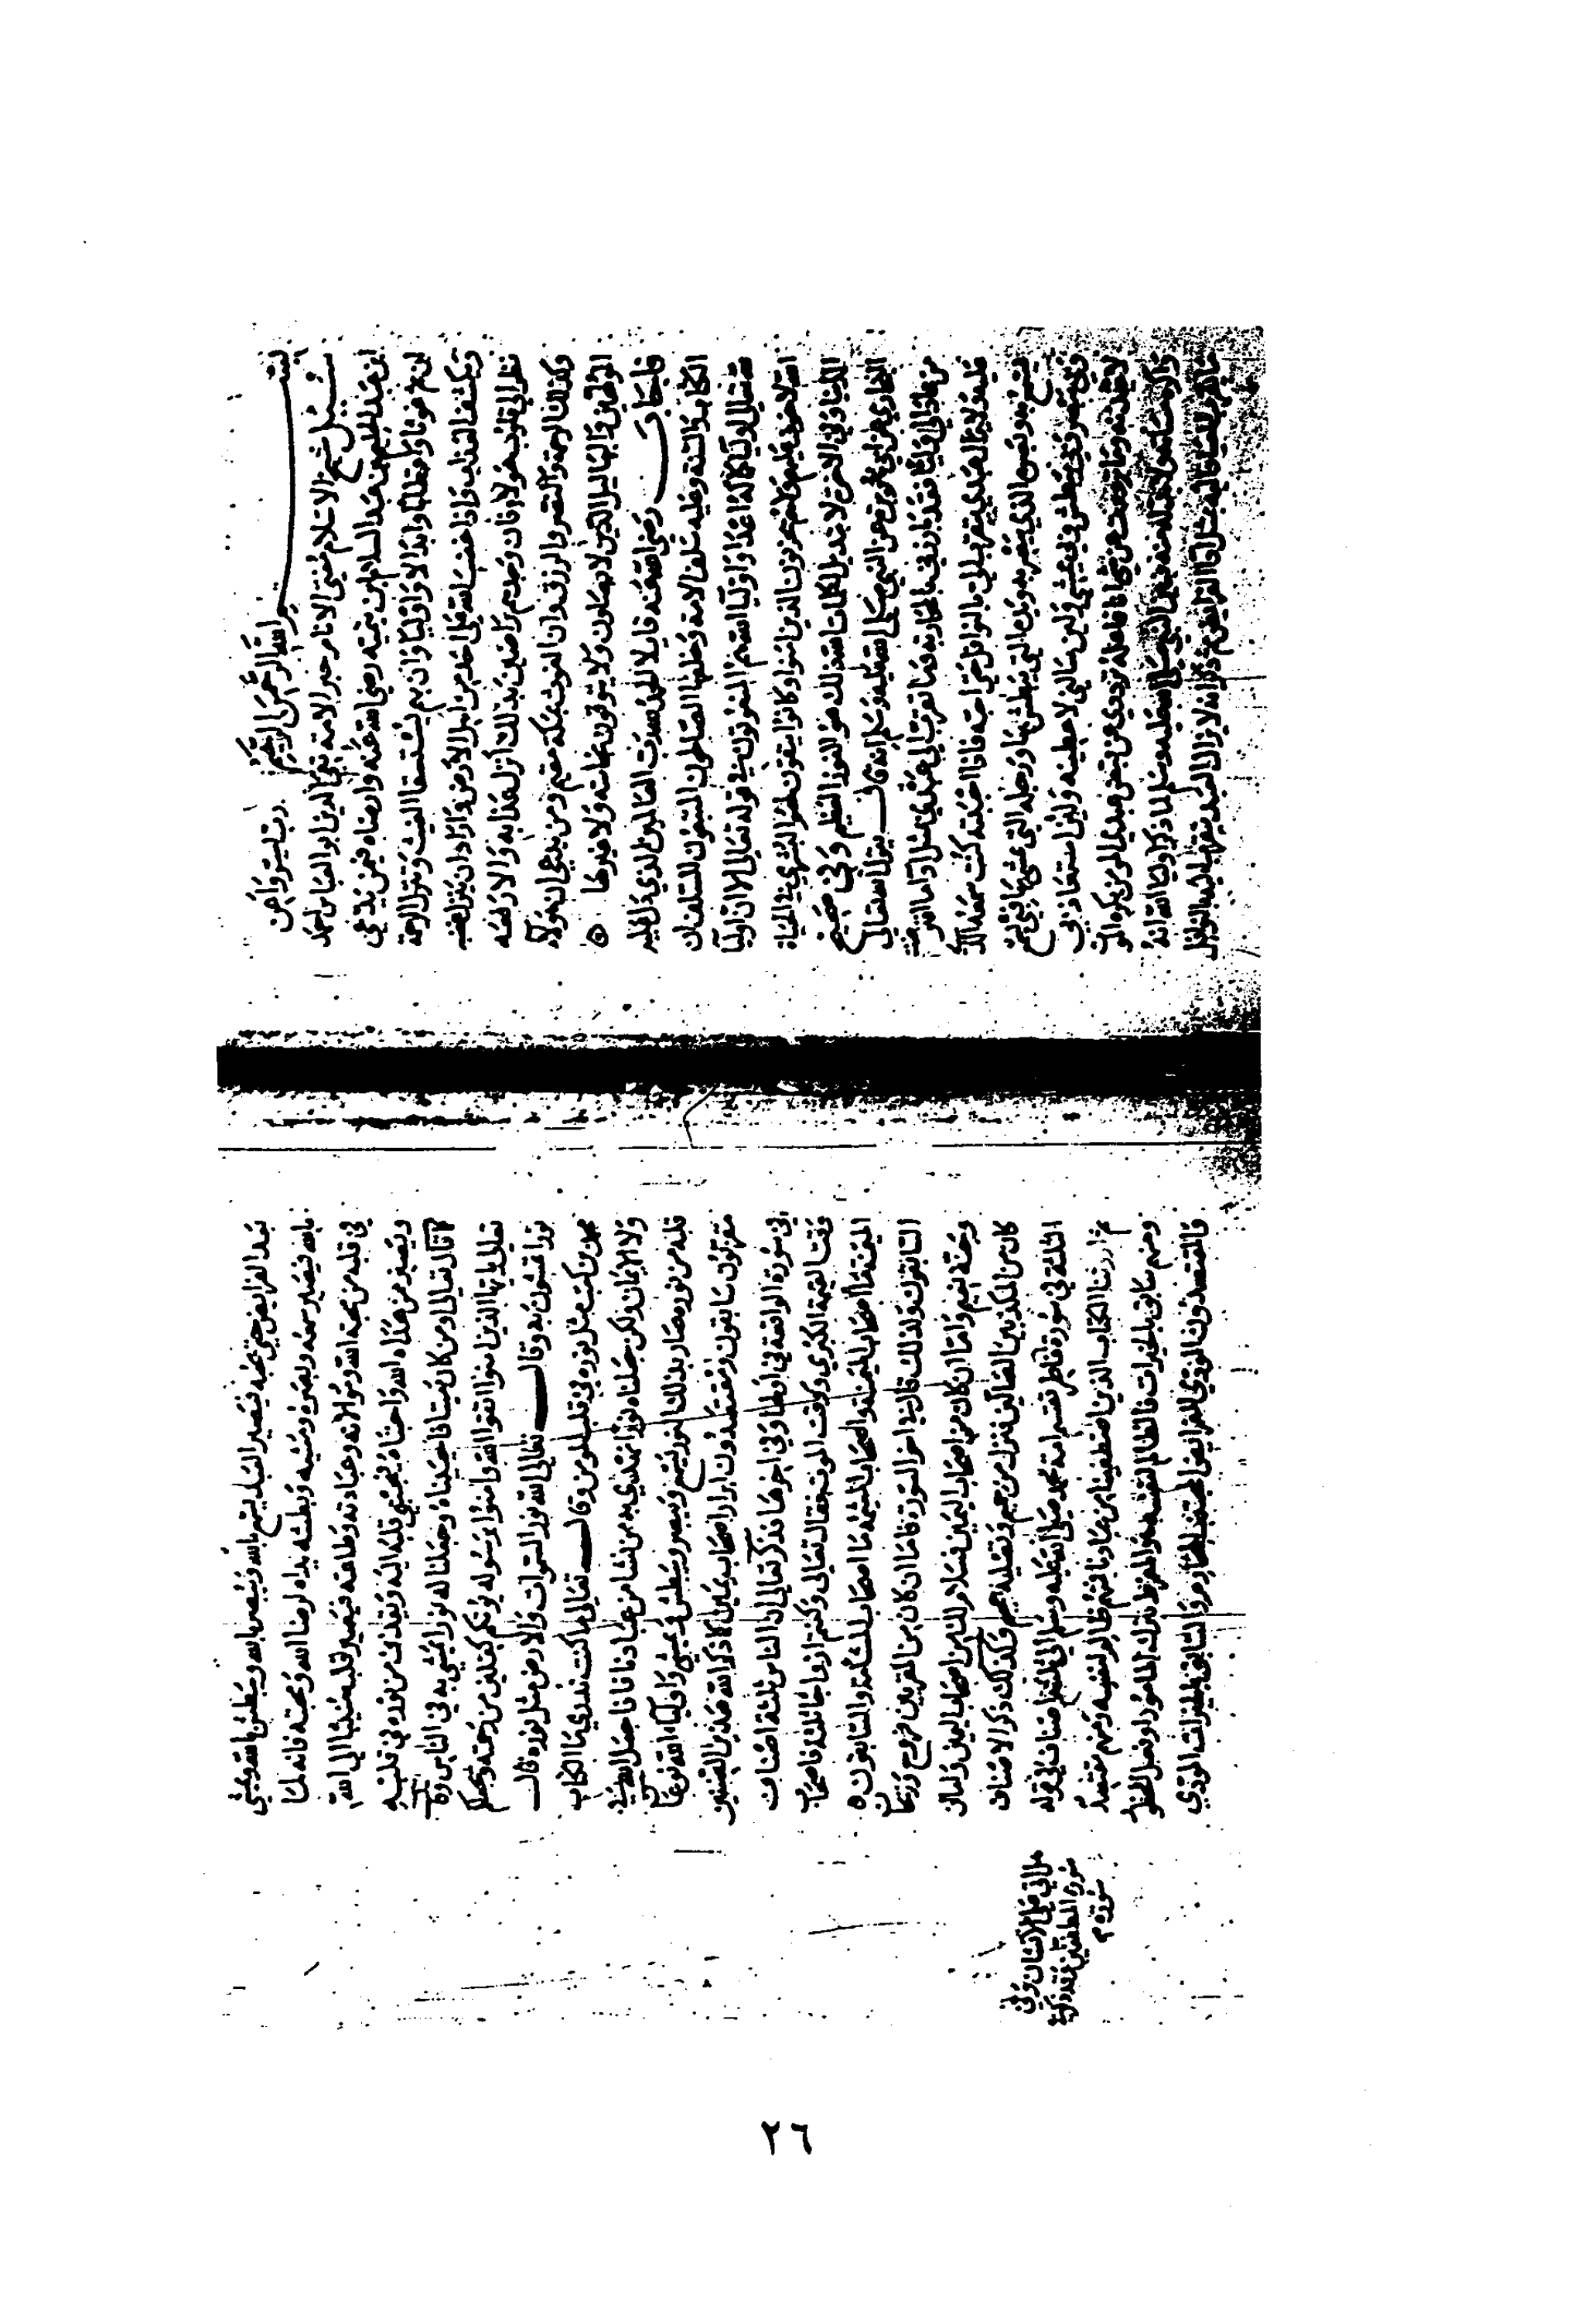 بسم الله الرحمن الرحيم رب يسر واعن
سئل شيخ الاسلام مفتي الانام حبر الامة تقي الدين ابو العباس احمد
ابن عبد الحليم بن عبد السلام بن تيميه رضي الله عنه وارضاه فيمن يدعي
ان ثم غوثا واقطابا وابدالا واوليا وان بهم يستسقا الغيث وتنزل الرحمة
ويكشف العذاب واذا غضب الله على احد من اهل الارض واراد ان ينزل غضبه
نظر الي قلوب هولا فان وجدهم راضين بذلك انزل عذابه والا دفعه
وكذلك الرحمة والنصر والرزق وان الغوث بمكة مقيم ومن يدعي ان هولاء
المولهين والبهاليل الذين لا يصلون ولا يتوقون نجاسة ولا غيرها
فاجاب رضي الله عنه قايلا الحمد لله رب العالمين الذي دل عليه
الكتاب والسنة وعليه سلف الامة وخلفها الصالحون المتبعون للسلف ان
لله تعالى اوليا كما له اعدا واوليا الله هم المنعوتون في قوله تعالى الا ان اوليا
الله لا خوف عليهم ولا هم يحزنون الذين امنوا وكانوا يتقون لهم البشري في الحياة
الدنيا وفي الاخرة لا تبديل لكلمات الله ذلك هو الفوز العظيم وفي صحيح
البخاري عن ابي هريرة عن النبي صلى الله عليه وسلم انه قال يقول الله تعالى
من عادي لي وليا فقد بارزني بالمحاربة وما تقرب الي عبدي بمثل اداما افترضت
عليه ولا يزال عبدي يتقرب الي بالنوافل حتي احبه فاذا احببته كنت سمعه الذي
يسمع به وبصره الذي يبصر به ويده التي يبطش بها ورجله التي يمشي بها فبي يسمع
وبي يبصر وبي يبطش وبي يمشي ولين سالني لاعطينه ولين استعاذ بي
لاعيذنه وما ترددت عن شي انا فاعله ترددي عن قبض عبدي المومن يكره الموت
واكره مساته ولا بد له منه فبين النبي صلى الله عليه وسلم لما ذكر اوليا الله انه
لا يزال العبد يتقرب اليه بالنوافل
بعد الفرايض حتي يحبه فيصير العبد يسمع بالله ويبصر بالله ويبطش بالله ويمشي
بالله فيصير سمعه وبصره ومشيه وبطشه يداه لرضا الله ومحبته فانه لما
في قلبه من محبة الله وموالاته وعبادته وطاعته فيصير قلبه منيبا الي الله
ويصير من هداه الله واجتباه يجتبي قلبه اليه ويقذف من نوره في قلبه
كما قال تعالى اومن كان ميتا فاحييناه وجعلنا له نورا يمشي به في الناس وقال
تعالى يايها الذين امنوا اتقوا الله وامنوا برسوله يوتكم كفلين من رحمته ويجعل لكم
نورا تمشون به وقال تعالى الله نور السموات والارض مثل نوره قال
ابي بن كعب مثل نوره في قلب المومن وقال تعالى ما كنت تدري ما الكتاب
ولا الايمان ولكن جعلناه نورا نهدي به من نشا من عبادنا فاذا جعل الله في
قلبه من نوره صار بذلك النور يسمع ويبصر ويبطش ويمشي واوليا الله نوعان
مقربون سابقون ومقتصدون ابرار اصحاب يمين كما ذكر الله هذين الصنفين
في سورة الواقعة في اولها وفي اخرها فذكر تعالى ان الناس ثلثة اصناف
وقت القيمة الكبري ووقت الموت فقال تعالى وكنتم ازواجا ثلثة فاصحاب
الميمنة ما اصحاب الميمنة واصحاب المشئمة ما اصحاب المشئمة والسابقون
السابقون وكذلك قال في اخر السورة فاما ان كان من المقربين فروح وريحان
وجنة نعيم واما ان كان من اصحاب اليمين فسلام لك من اصحاب اليمين واما ان
كان من المكذبين الضالين فنزل من حميم وتصلية جحيم وكذلك ذكر الاصناف
الثلثة في سورة فاطر قسم امة محمد صلى الله عليه وسلم الي ثلثة اصناف في قوله
ثم اورثنا الكتاب الذين اصطفينا من عبادنا فمنهم ظالم لنفسه ومنهم مقتصد
ومنهم سابق بالخيرات فالظالم لنفسه هو المفرط بترك المامور او فعل المحظور
والمقتصدون المودي للفرايض المجتنب للمحارم والسابق بالخيرات المودي
هل اتي على الانسان وفي
سورة المطففين
سورة
٢٦